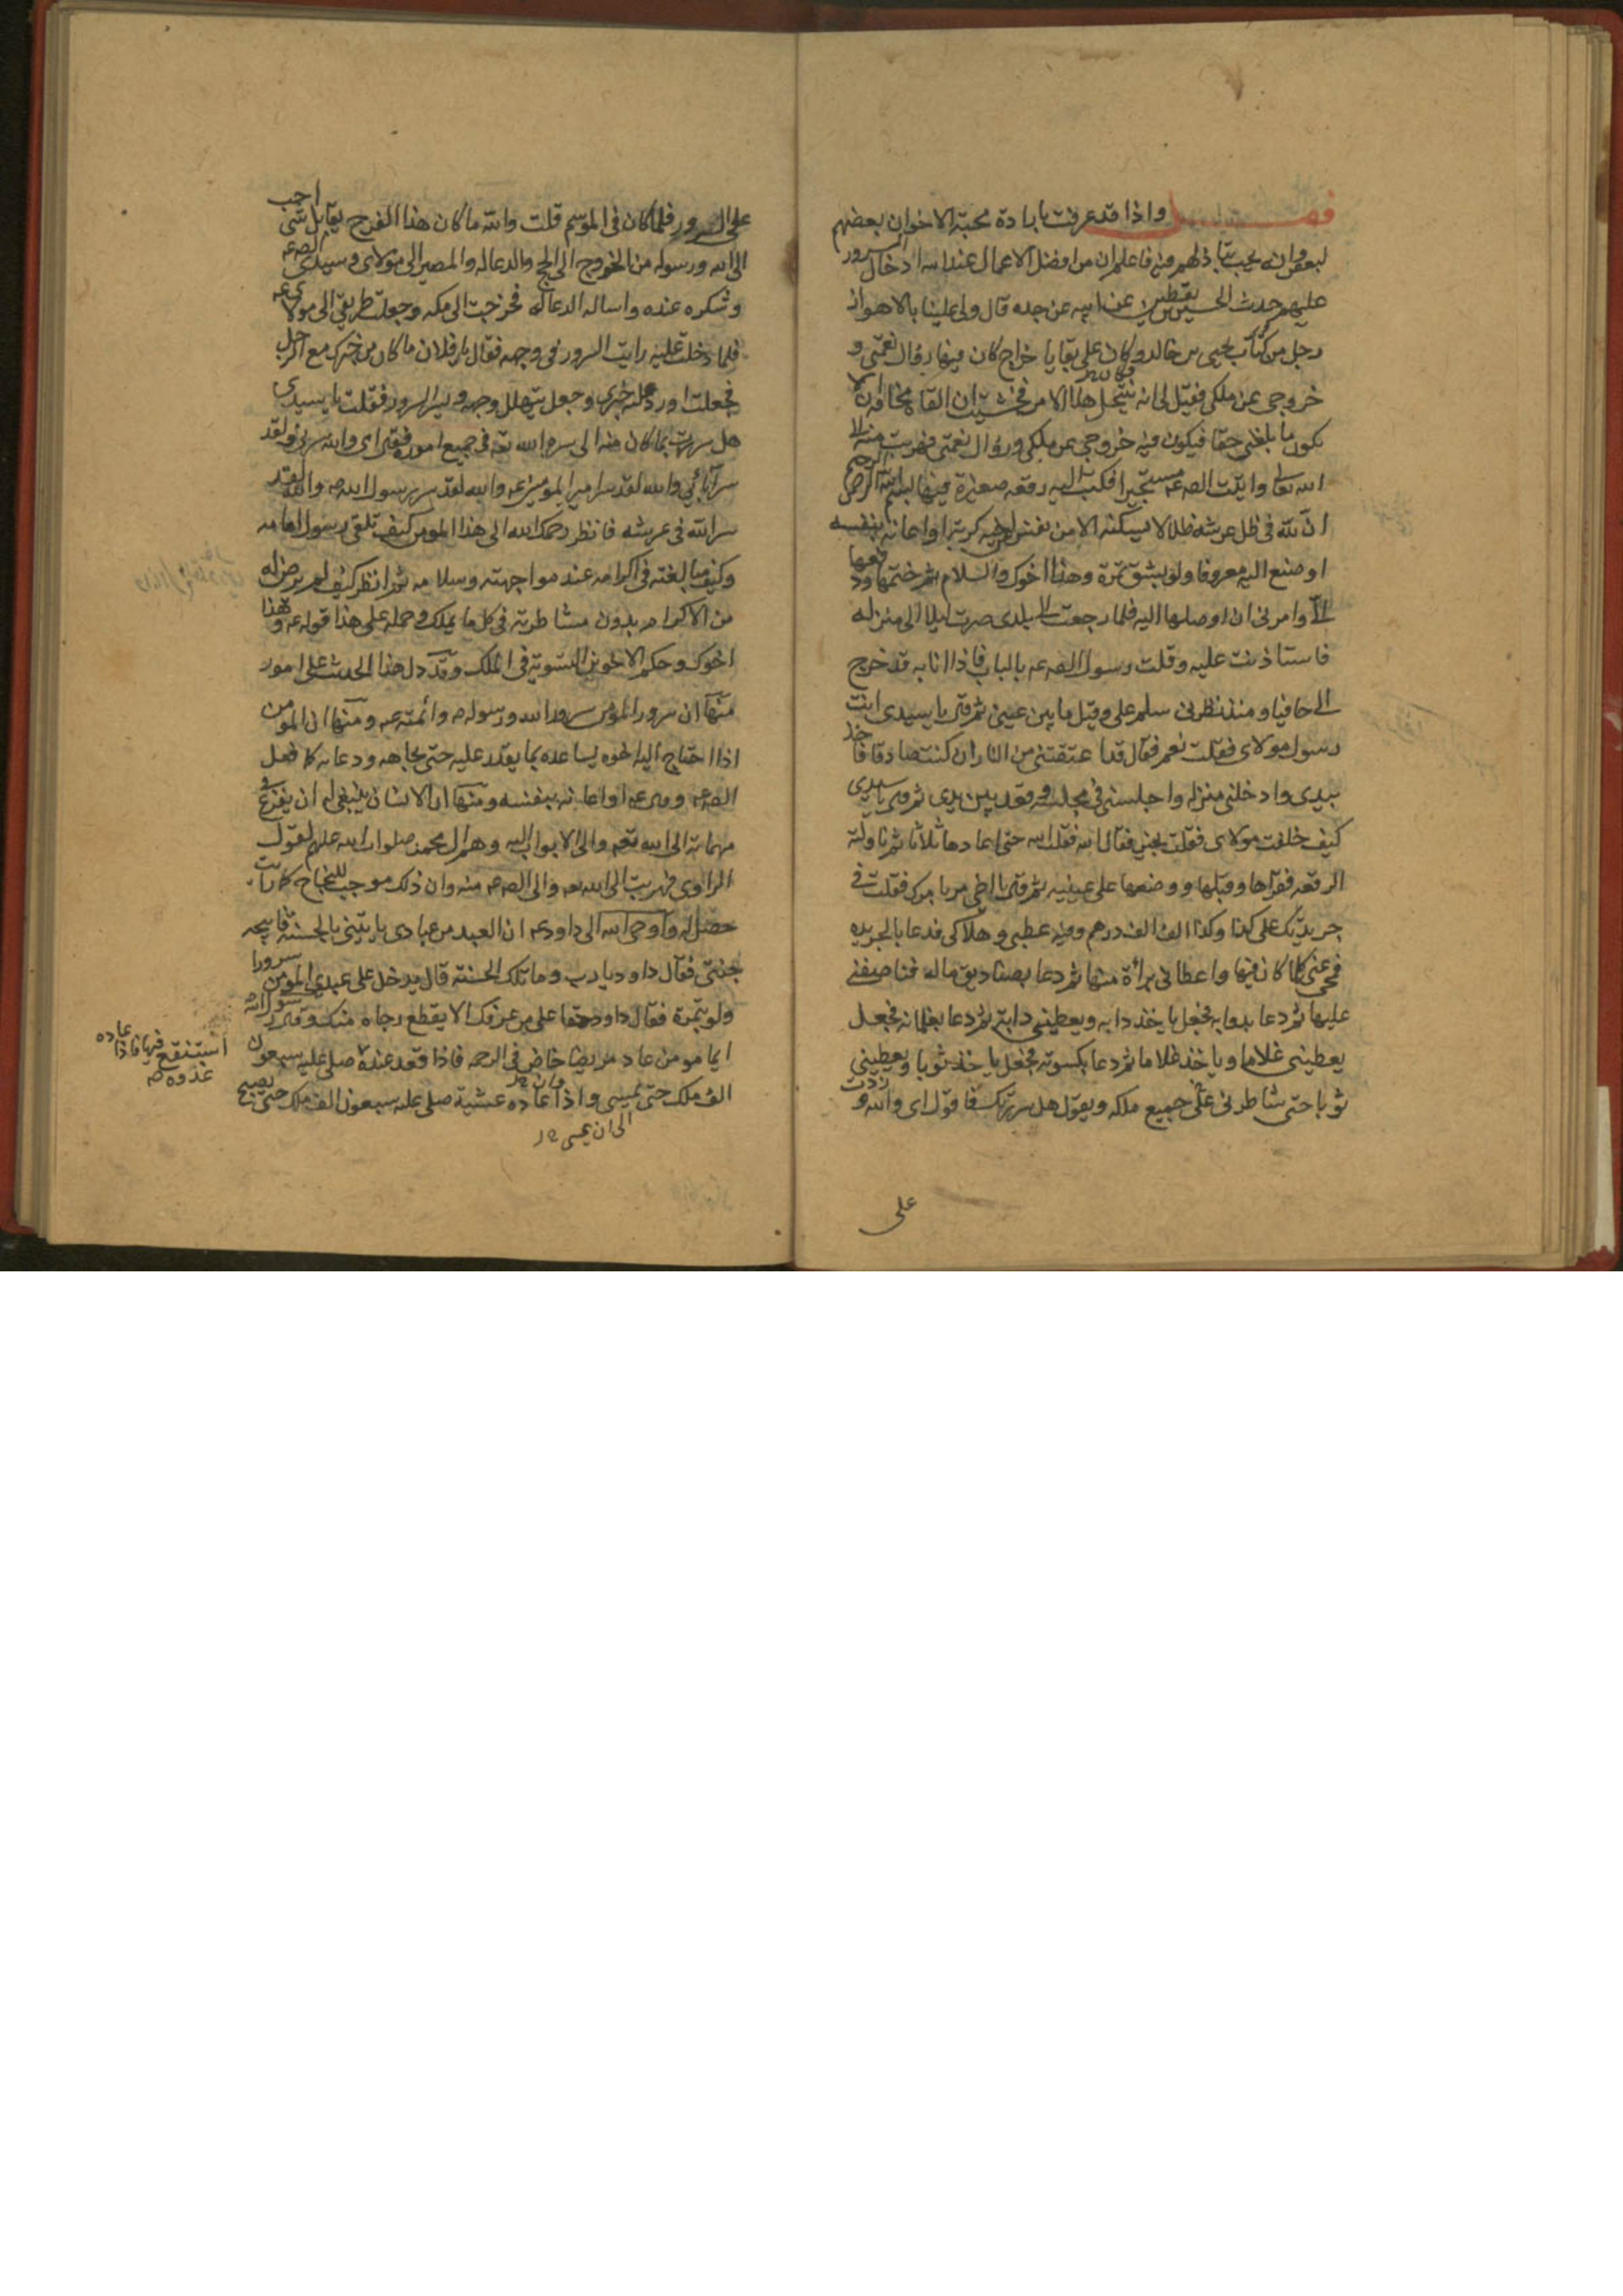 فصل واذا قد عرفت بابا دة محبة الاخوان بعضهم
لبعض وانه يجب بينهم فاعلم ان من افضل الاعمال عند الله ادخال السرور
عليهم حدث الحسين بن يقطين عن ابيه عن جده قال ولى علينا بالاهواز
رجل من كتاب يحيى بن خالد وكان على بقايا خراج كان فيها زوال نعمتى و
خروجى عن ملكى فقيل لى انه ينتحل هذا الامر فخشيت ان القاه مخافة ان لا
يكون ما بلغنى حقا فيكون فيه خروجى عن ملكى وزوال نعمتى فهربت منه الى
الله تعالى واتيت الص عه مستجيرا فكتب اليه رقعه صغيرة فيها بسم الله الرحمن الرحيم
ان لله فى ظل عرشه ظلالا لا يسكنه الا من نفس عن اخيه كربة او اعانه بنفسه
او صنع اليه معروفا ولو بشق تمرة وهذا اخوك والسلام ثم ختمها ودفعها
الى وامرنى ان اوصلها اليه فلما رجعت الى بلدى صرت ليلا الى منزله
فاستاذنت عليه وقلت رسول الص عه بالباب فاذا انا به قد خرج
الى حافيا ومنذ نظرنى سلم على وقبل ما بين عينى ثم قال يا سيدى انت
رسول مولاى فقلت نعم فقال قد اعتقتنى من النار ان كنت صادقا فاخذ
بيدى وادخلنى منزله واجلسنى فى مجلسه وقعد بين يدى ثم قال يا سيدى
كيف خلفت مولاى فقلت بخير فقال الله فقلت الله حتى اعادها ثلاثا ثم ناولته
الرقعه فقراها وقبلها ووضعها على عينيه ثم قال يا اخى مر بامرك فقلت فى
جريدتك على كذا وكذا الف الف درهم وفيه عطبى وهلاكى فدعا بالجريده
فمحى عنى كلما كان فيها واعطانى براءة منها ثم دعا بصناديق ماله فناصفنى
عليها ثم دعا بدوابه فجعل ياخذ دابه ويعطينى دابة ثم دعا بغلمانه فجعل
يعطينى غلاما وياخذ غلاما ثم دعا بكسوته فجعل ياخذ ثوبا ويعطينى
ثوبا حتى شاطرنى على جميع ملكه ويقول هل سررتك فاقول اى والله وزدت
على
على السرور فلما كان فى الموسم قلت والله ما كان هذا الفرج يقابل بشى احب
الى الله ورسوله من الخروج الى الحج والدعا له والمصير الى مولاى وسيدى الص عه
وشكره عنده واساله الدعا له فخرجت الى مكه وجعلت طريقى الى مولاى عه
فلما دخلت عليه رايت السرور فى وجهه فقال يا فلان ما كان من خبرك مع الرجل
فجعلت اورد عليه خبرى وجعل يتهلل وجهه ويسر السرور فقلت يا سيدى
هل سررت بما كان منه الى سره الله تعه فى جميع اموره فقال اى والله سرنى ولقد
سر آبائي والله لقد سر امير المومنين عه والله لقد سر رسول الله ص والله لقد
سر الله فى عرشه فانظر رحمك الله الى هذا المومن كيف تلقى رسول امامه
وكيف مبالغته فى اكرامه عند مواجهته وسلامه ثم انظر كيف لم يرض له
من الاكرام بدون مشاطرته فى كل ما يملك وحمله على هذا قوله عه وهذا
اخوك وحكم الاخوين التسوية فى الملك وقد دل هذا الحديث على امور
منها ان سرور المومن سرور الله ورسوله ص وائمته عه ومنها ان المومن
اذا احتاج اليه اخوه يساعده بما يقدر عليه حتى بجاهه ودعائه كما فعل
الص عه وقوله عه او اعانه بنفسه ومنها ان الانسان ينبغى له ان يفزع فى
مهماته الى الله تعه والى الابواب اليه وهم ال محمد صلوات الله عليهم لقول
الراوى فهربت الى الله تعه والى الص عه منه وان ذلك موجب للنجاح كما
حصل له واوحى الله الى داود عه ان العبد من عبادى ياتينى بالحسنة فابيحه
جنتى فقال داود يا رب وما تلك الحسنة قال يدخل على عبدى المومن سرورا
ولو بتمرة فقال داود حقا على من عرفك الا يقطع رجاه منك وقال رسول الله
ايما مومن عاد مريضا خاض فى الرحمه فاذا قعد عنده صلى عليه سبعون
الف ملك حتى يمسى واذا عاده عشية صلى عليه سبعون الف ملك حتى يصبح
الى ان يمسى
استنقع فيها فاذا عاده
غدوه ص